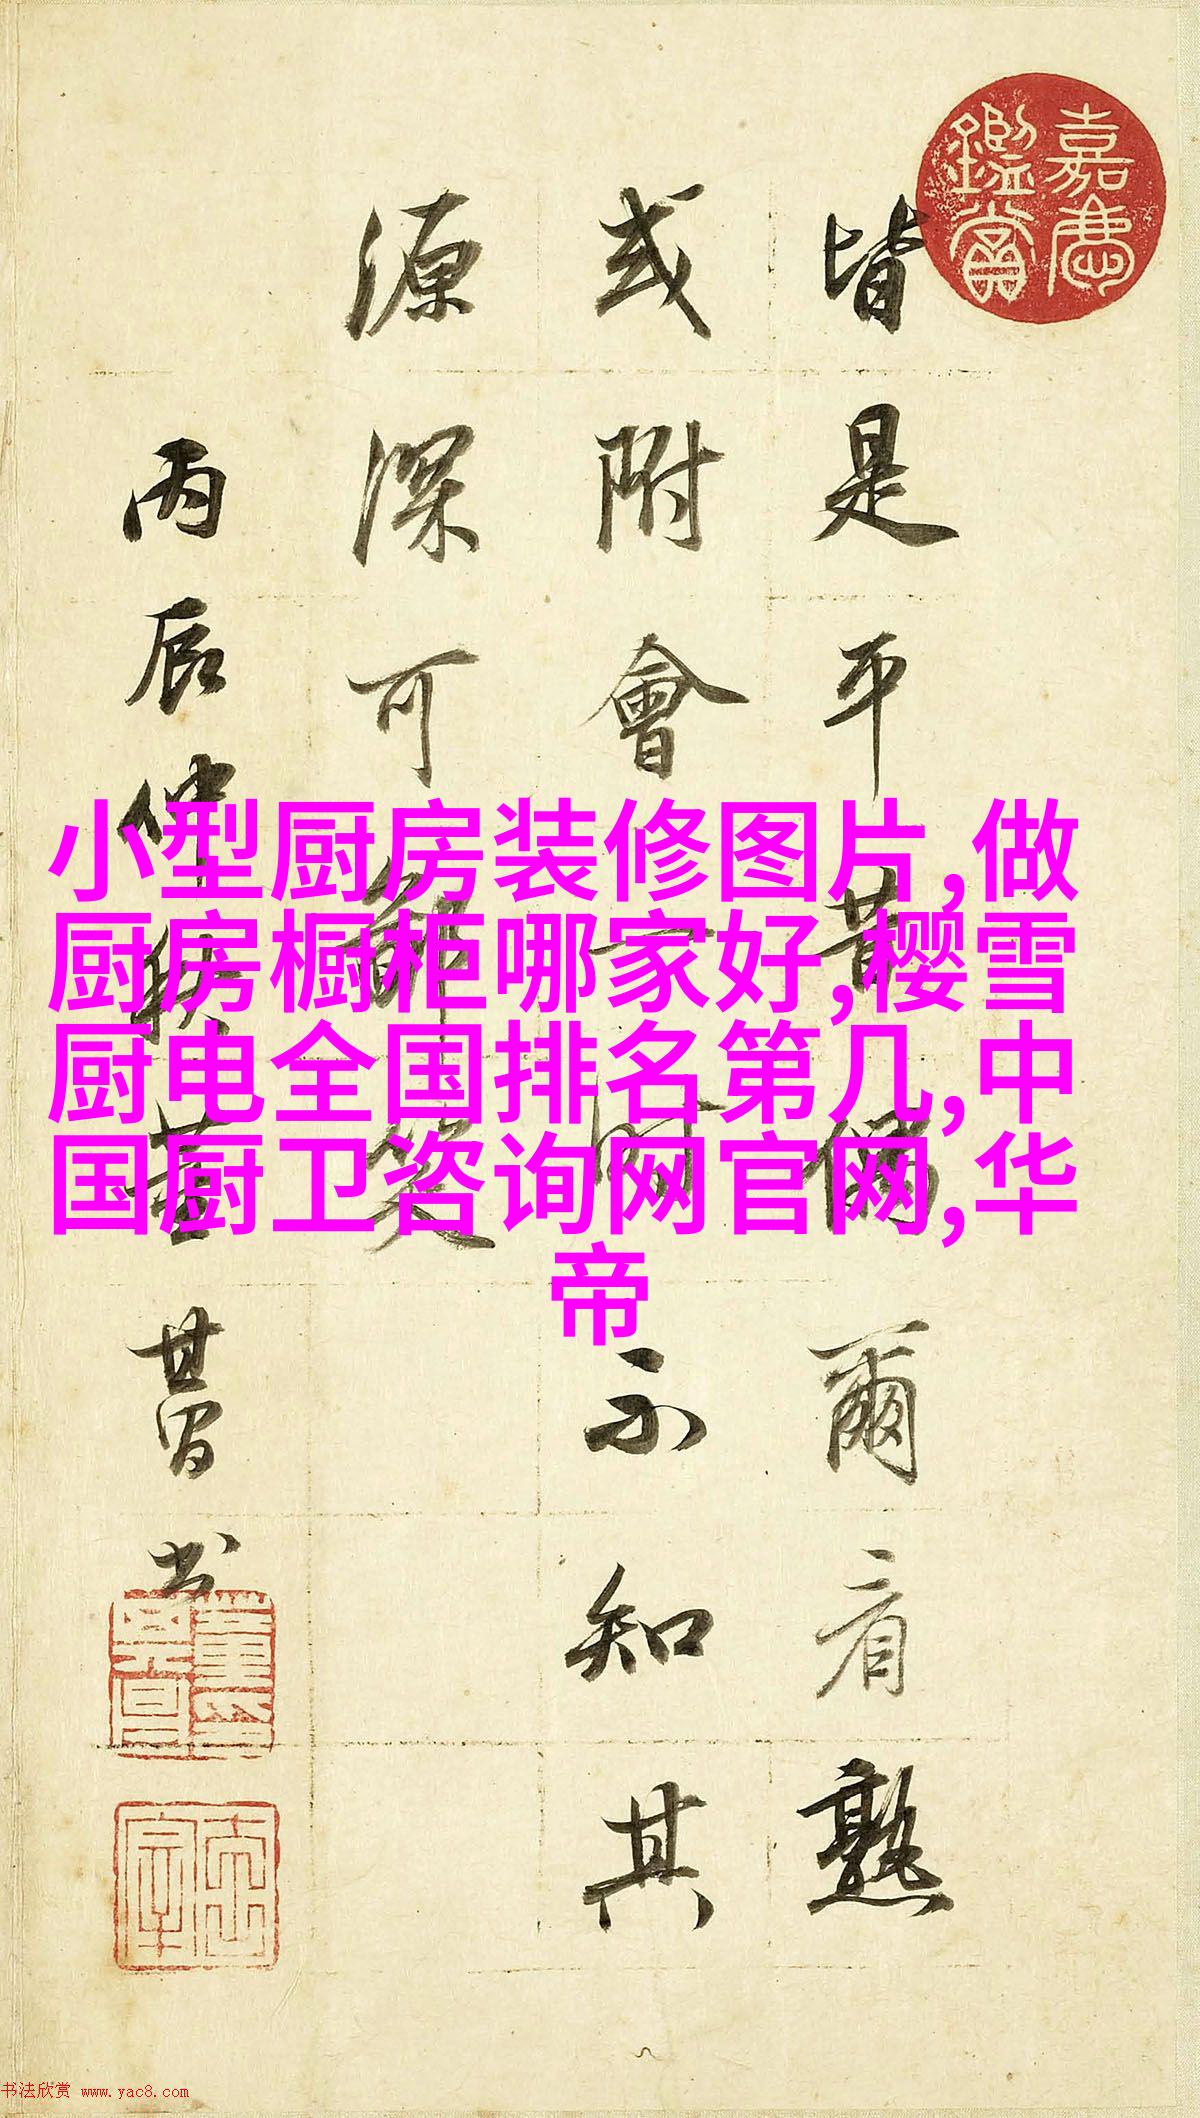 嘉慶
鑑賞
皆是平昔偶爾看熟
或附會一時不知其
源深可鄙笑
丙辰仲秋董其昌书
小型厨房装修图片,做
厨房橱柜哪家好,樱雪
厨电全国排名第几,中
国厨卫咨询网官网,华
帝
书法欣赏 www.yac8.com